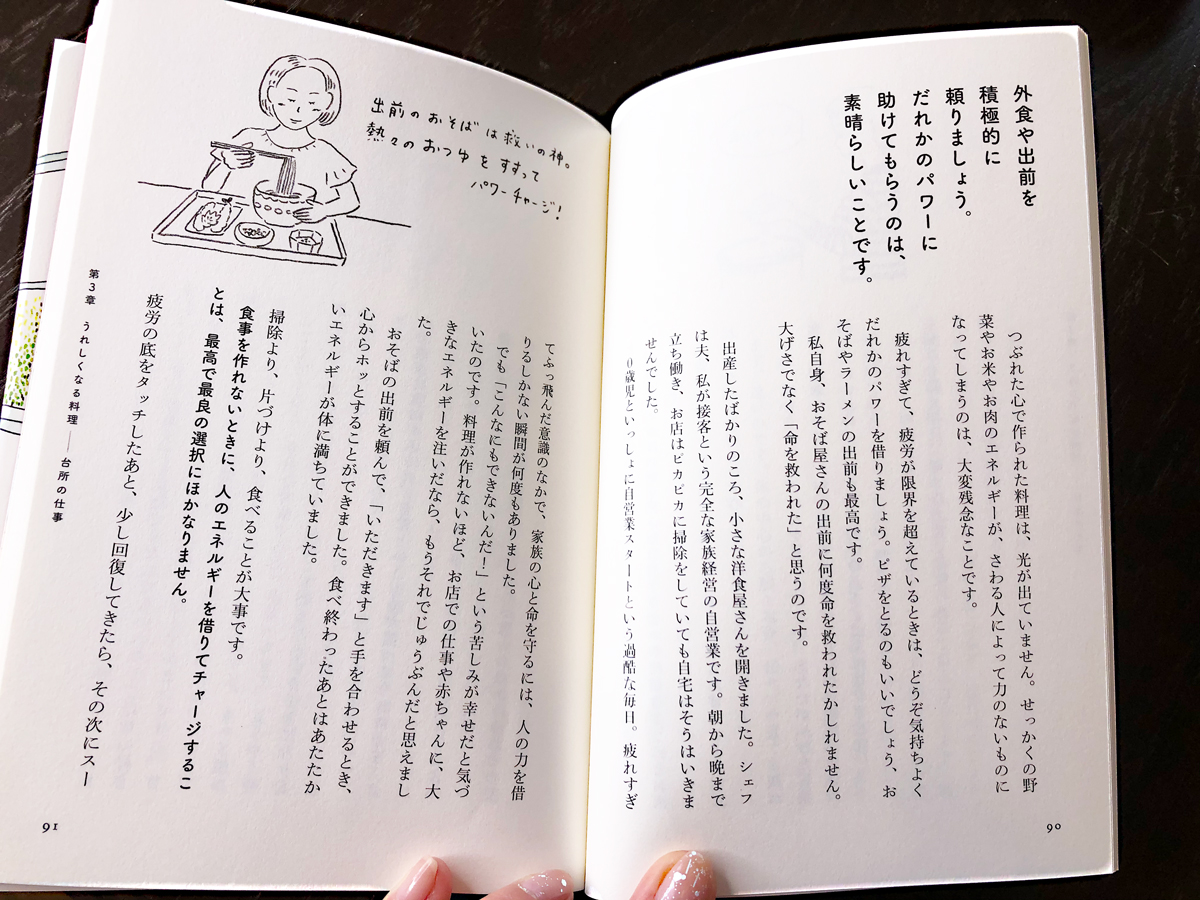 外食や出前を
積極的に
頼りましょう。
だれかのパワーに
助けてもらうのは、
素晴らしいことです。
つぶれた心で作られた料理は、光が出ていません。せっかくの野
菜やお米やお肉のエネルギーが、さわる人によって力のないものに
なってしまうのは、大変残念なことです。
疲れすぎて、疲労が限界を超えているときは、どうぞ気持ちよく
だれかのパワーを借りましょう。ピザをとるのもいいでしょう、お
そばやラーメンの出前も最高です。
私自身、おそば屋さんの出前に何度命を救われたかしれません。
大げさでなく「命を救われた」と思うのです。
出産したばかりのころ、小さな洋食屋さんを開きました。シェフ
は夫、私が接客という完全な家族経営の自営業です。朝から晩まで
立ち働き、お店はピカピカに掃除をしていても自宅はそうはいきま
せんでした。
0歳児といっしょに自営業スタートという過酷な毎日。疲れすぎ
90
出前のおそばは救いの神。
熱々のおつゆをすすって
パワーチャージ!
てふっ飛んだ意識のなかで、家族の心と命を守るには、人の力を借
りるしかない瞬間が何度もありました。
でも「こんなにもできないんだ!」という苦しみが幸せだと気づ
いたのです。料理が作れないほど、お店での仕事や赤ちゃんに、大
きなエネルギーを注いだなら、もうそれでじゅうぶんだと思えまし
た。
おそばの出前を頼んで、「いただきます」と手を合わせるとき、
心からホッとすることができました。食べ終わったあとはあたたか
いエネルギーが体に満ちていました。
掃除より、片づけより、食べることが大事です。
食事を作れないときに、人のエネルギーを借りてチャージするこ
とは、最高で最良の選択にほかなりません。
疲労の底をタッチしたあと、少し回復してきたら、その次にスー
第3章 うれしくなる料理――台所の仕事
91